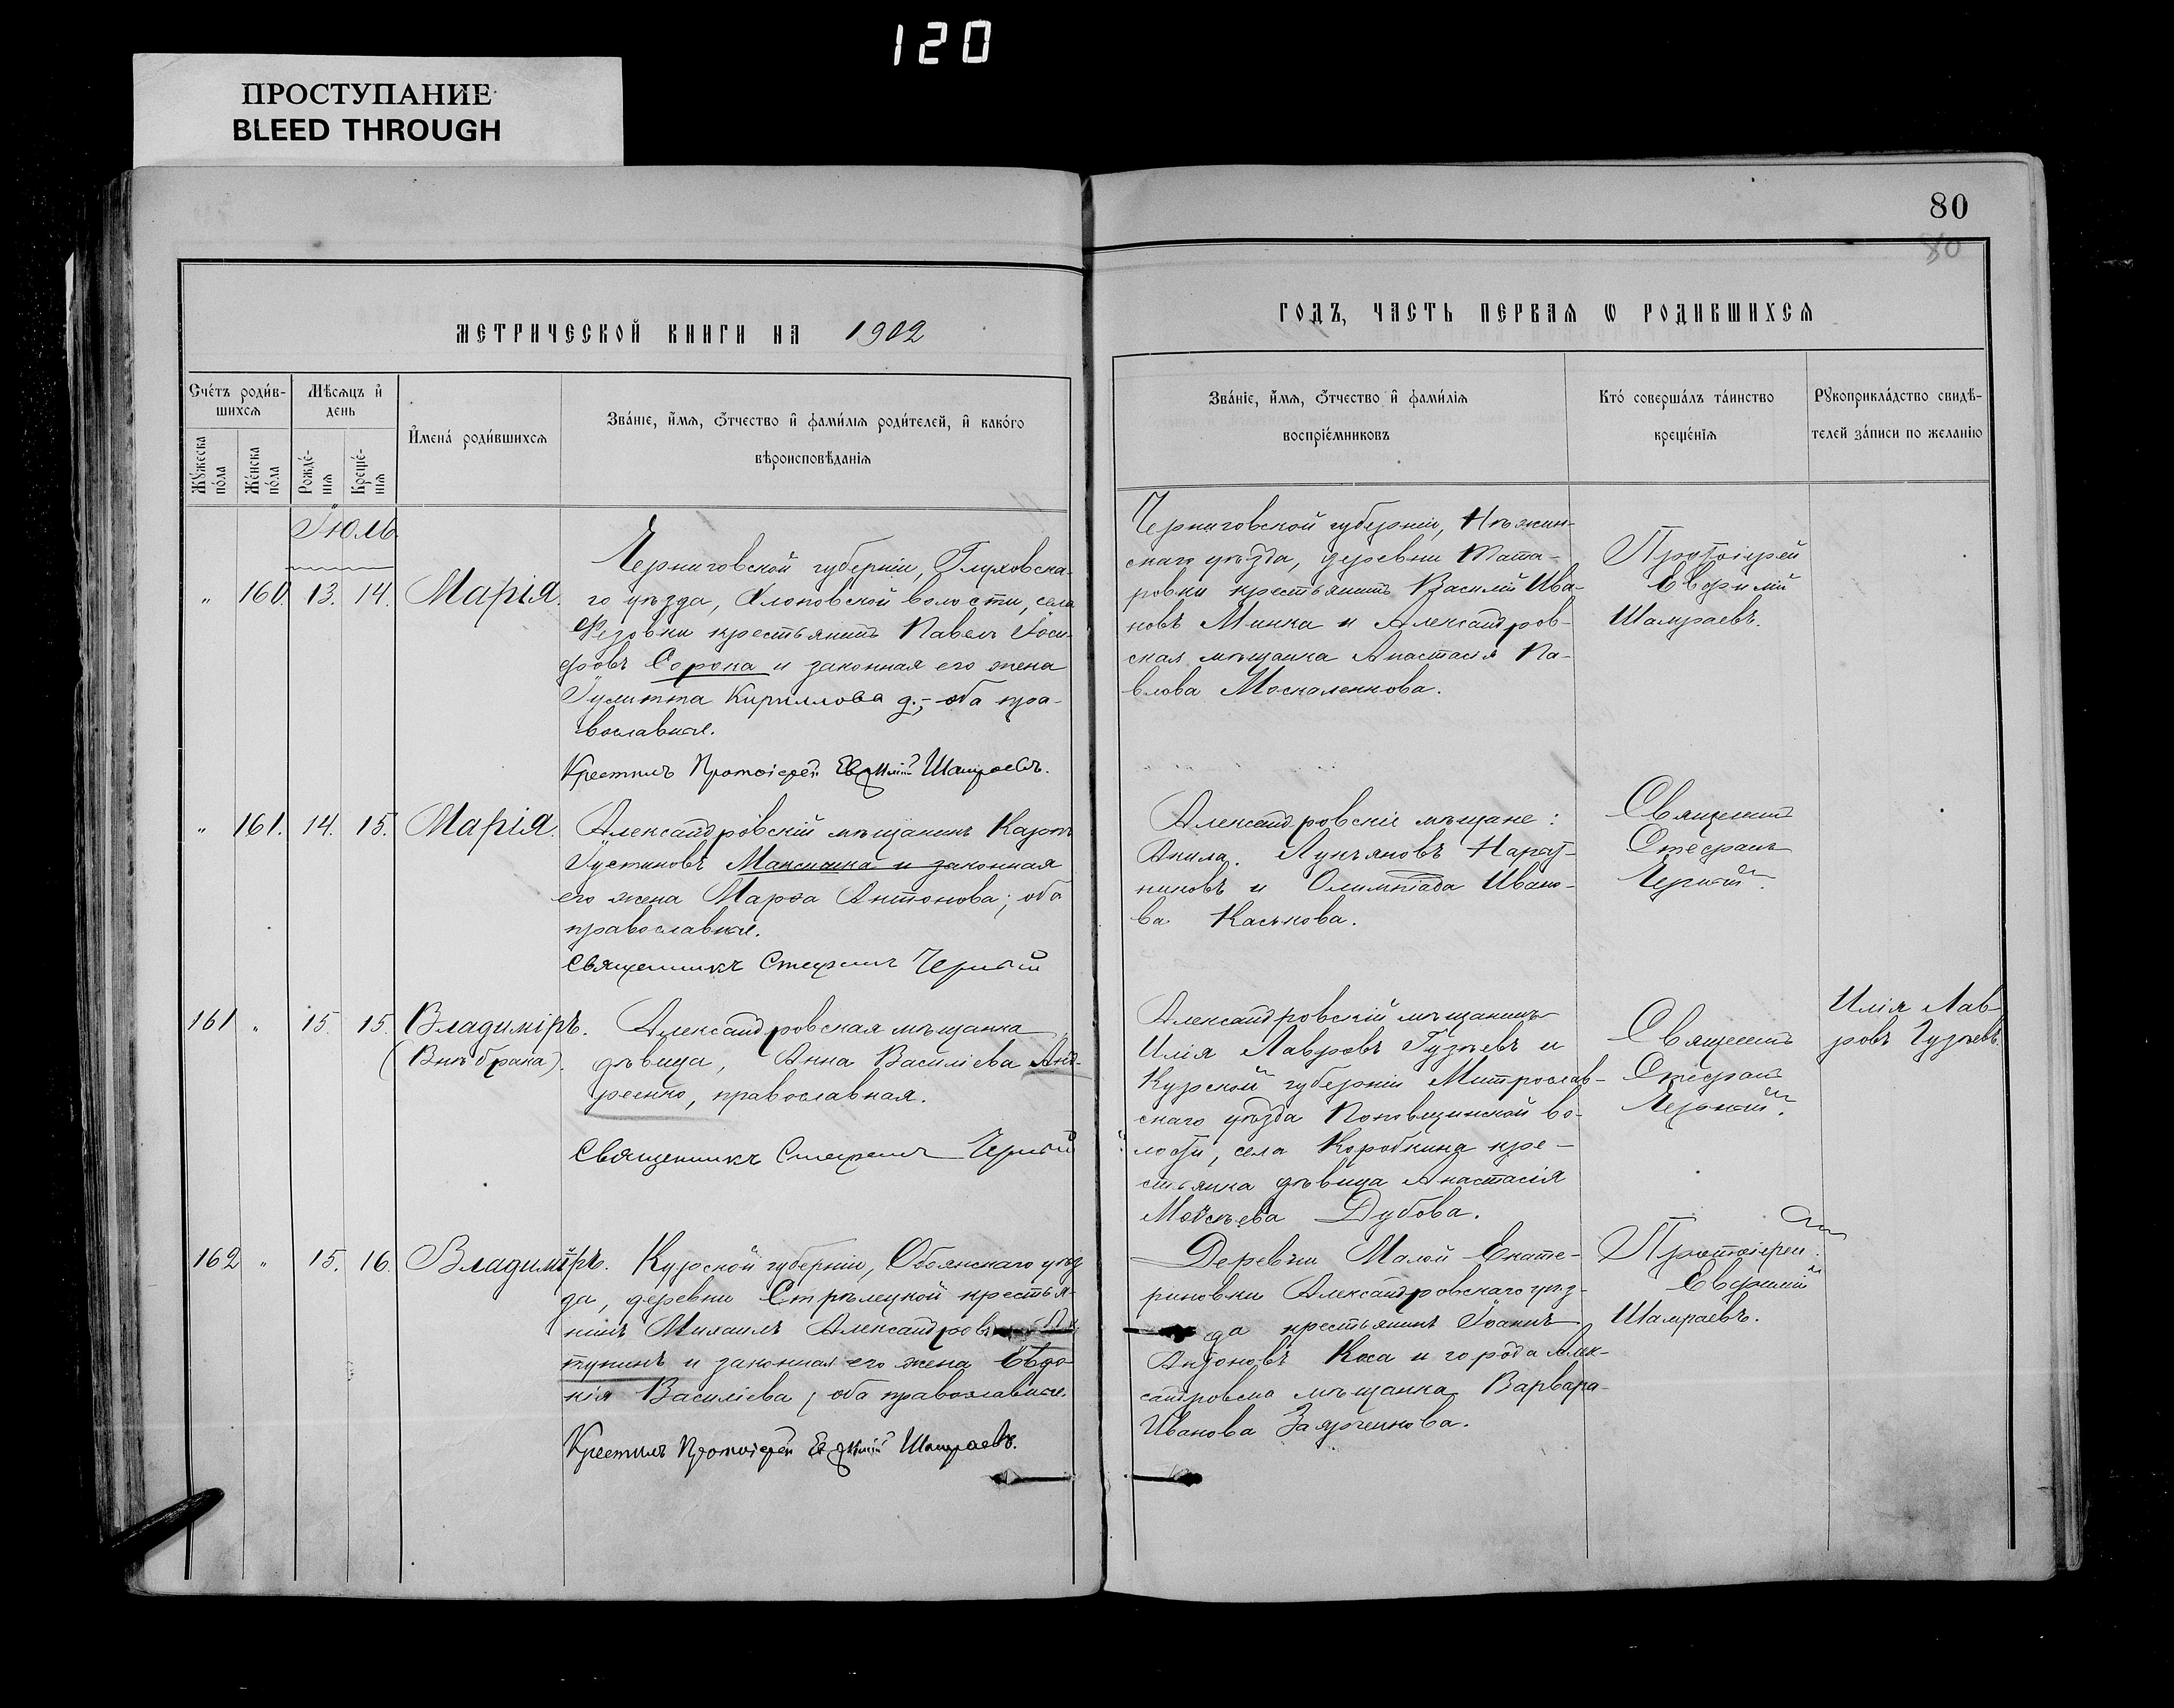 120
ПРОСТУПАНИЕ
BLEED THROUGH
80
80
МЕТРИЧЕСКОЙ КНИГИ НА 1902
ГОДЪ, ЧАСТЬ ПЕРВАѦ Ѡ РОДИВШИХСѦ
Сче́тъ роди́в-
шихсѧ
Мѣсѧцъ и҆
день
И҆мена́ роди́вшихсѧ
Зва́нїе, и҆́мѧ, ѻ҆́тчество и҆ фами́лїѧ роди́телей, и҆ како́гѡ
вѣроисповѣ́данїѧ
Мꙋ́жеска
по́ла
Же́нска
по́ла
Рожде́-
нїѧ
Креще́-
нїѧ
Зва́нїе, и҆́мѧ, ѻ҆́тчество и҆ фами́лїѧ
воспрїе́мниковъ
Кто́ соверша́лъ та́инство
креще́нїѧ
Рꙋкоприкла́дство свидѣ́-
телей за́писи по жела́нїю
Іюль
„ 160. 13. 14. Марія.
Черниговской губерніи, Глуховска-
го уѣзда, волости, села
крестьянинъ Павелъ Іоси-
фовъ Сорока и законная его жена
Іулитта Кириллова д.; оба пра-
вославные.
Крестилъ Протоіерей Евфимій Шамраевъ.
Черниговской губерніи, Нѣжин-
скаго уѣзда, деревни Тата-
ровки крестьянинъ Василій Ива-
новъ Минка и Александров-
ская мѣщанка Анастасія Па-
влова Москаленкова.
Протоіерей
Евфимій
Шамраевъ.
„ 161. 14. 15. Марія.
Александровскій мѣщанинъ Карпъ
Іустиновъ и законная
его жена Марѳа Антонова; оба
православные.
Священникъ Стефанъ Черный
Александровскіе мѣщане:
Акила Лукьяновъ
и Олимпіада Ивано-
ва Каськова.
Священникъ
Стефанъ
Черный.
161 „ 15. 15. Владиміръ.
(Внѣ брака).
Александровская мѣщанка
дѣвица, Анна Василіева Анд-
реенко, православная.
Священникъ Стефанъ Черный
Александровскій мѣщанинъ
Илія Лавровъ Гузѣевъ и
Курской губерніи
скаго уѣзда во-
лости, села Коробкина кре-
стьянка дѣвица Анастасія
Моѵсѣева Дубова.
Священникъ
Стефанъ
Черный.
Илія Лав-
ровъ Гузѣевъ
162 „ 15. 16. Владиміръ.
Курской губерніи, Обоянскаго уѣз-
да, деревни Стрѣлецкой крестья-
нинъ Михаилъ Александровъ
и законная его жена Евдо-
кія Василіева; оба православные.
Крестилъ Протоіерей Евфимій Шамраевъ.
Деревни Малой Екате-
риновки Александровскаго уѣз-
да крестьянинъ Іоаннъ
Антоновъ Коса и города Алек-
сандровска мѣщанка Варвара
Иванова
Протоіерей
Евфимій
Шамраевъ.